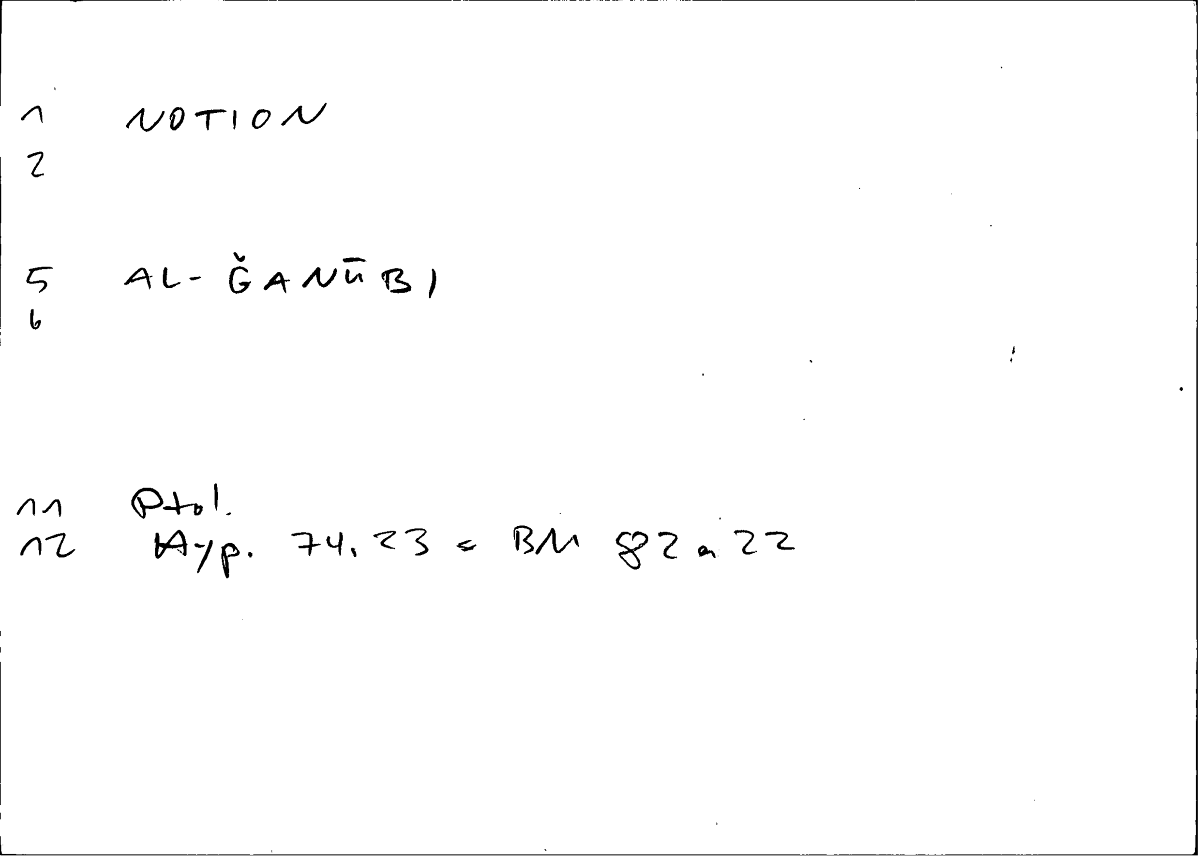 1 NOTION
2
5 AL-ǦANŪBI
6
11 Ptol.
12 Hyp. 74.23 = BM 82a22